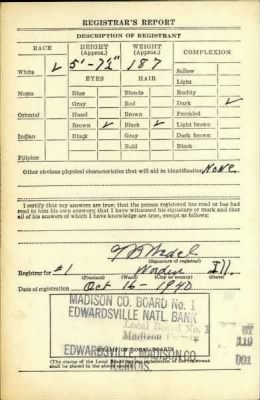 REGISTRAR'S REPORT
DESCRIPTION OF REGISTRANT
RACE HEIGHT (Approx.) WEIGHT (Approx.) COMPLEXION
White ✓ 5'-7½" 187 Sallow
Light
EYES HAIR
Negro Blue Blonde Ruddy
Gray Red Dark ✓
Oriental Hazel Brown Freckled
Brown ✓ Black ✓ Light brown
Indian Black Gray Dark brown
Bald Black
Filipino
Other obvious physical characteristics that will aid in identification None
I certify that my answers are true; that the person registered has read or has had
read to him his own answers; that I have witnessed his signature or mark and that
all of his answers of which I have knowledge are true, except as follows:
(Signature of registrar)
Registrar for #1 Ill.
(Precinct) (Ward) (City or county) (State)
Date of registration Oct 16 - 1940
MADISON CO. BOARD No. 1
EDWARDSVILLE NATL. BANK
Local Board No. 1
Madison County
119
001
EDWARDSVILLE, MADISON CO.
ILLINOIS.
(STAMP OF LOCAL BOARD)
(The stamp of the Local Board having jurisdiction of the registrant
shall be placed in the above space.)